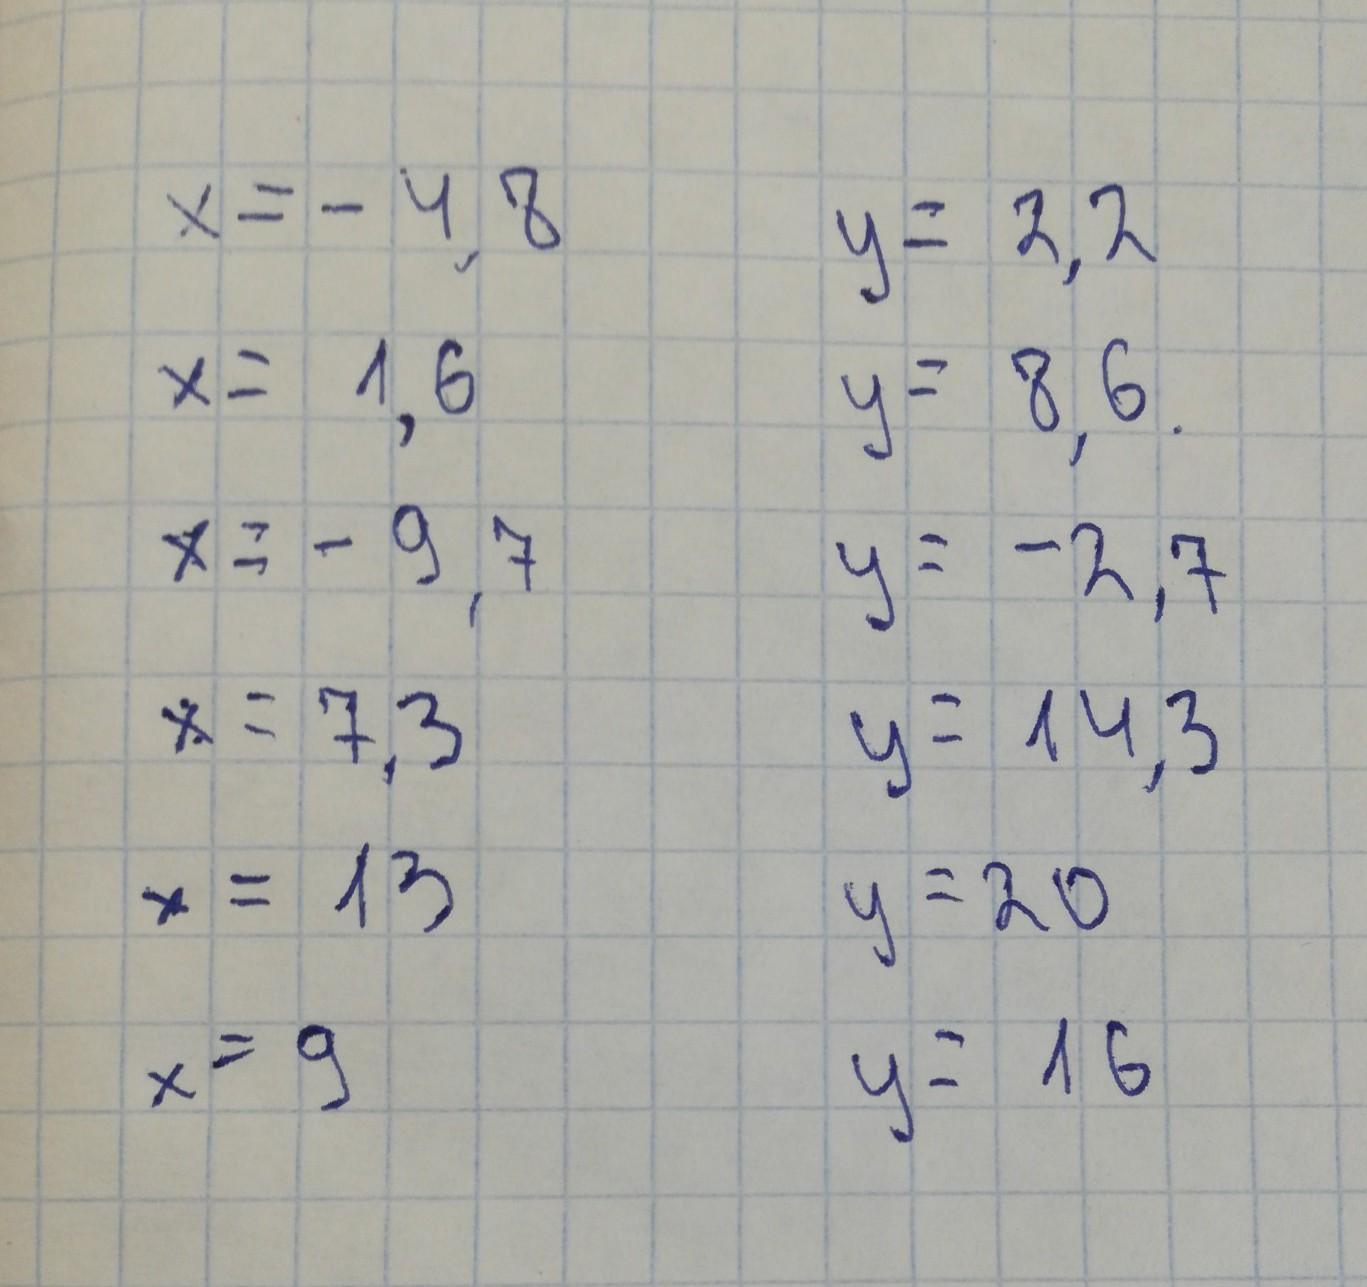 x = - 4,8 y = 2,2
x = 1,6 y = 8,6.
x = - 9,7 y = -2,7
x = 7,3 y = 14,3
x = 13 y = 20
x = 9 y = 16